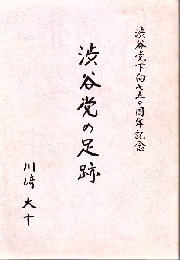 渋谷党下向七五〇周年記念
渋谷党の足跡
川﨑大十